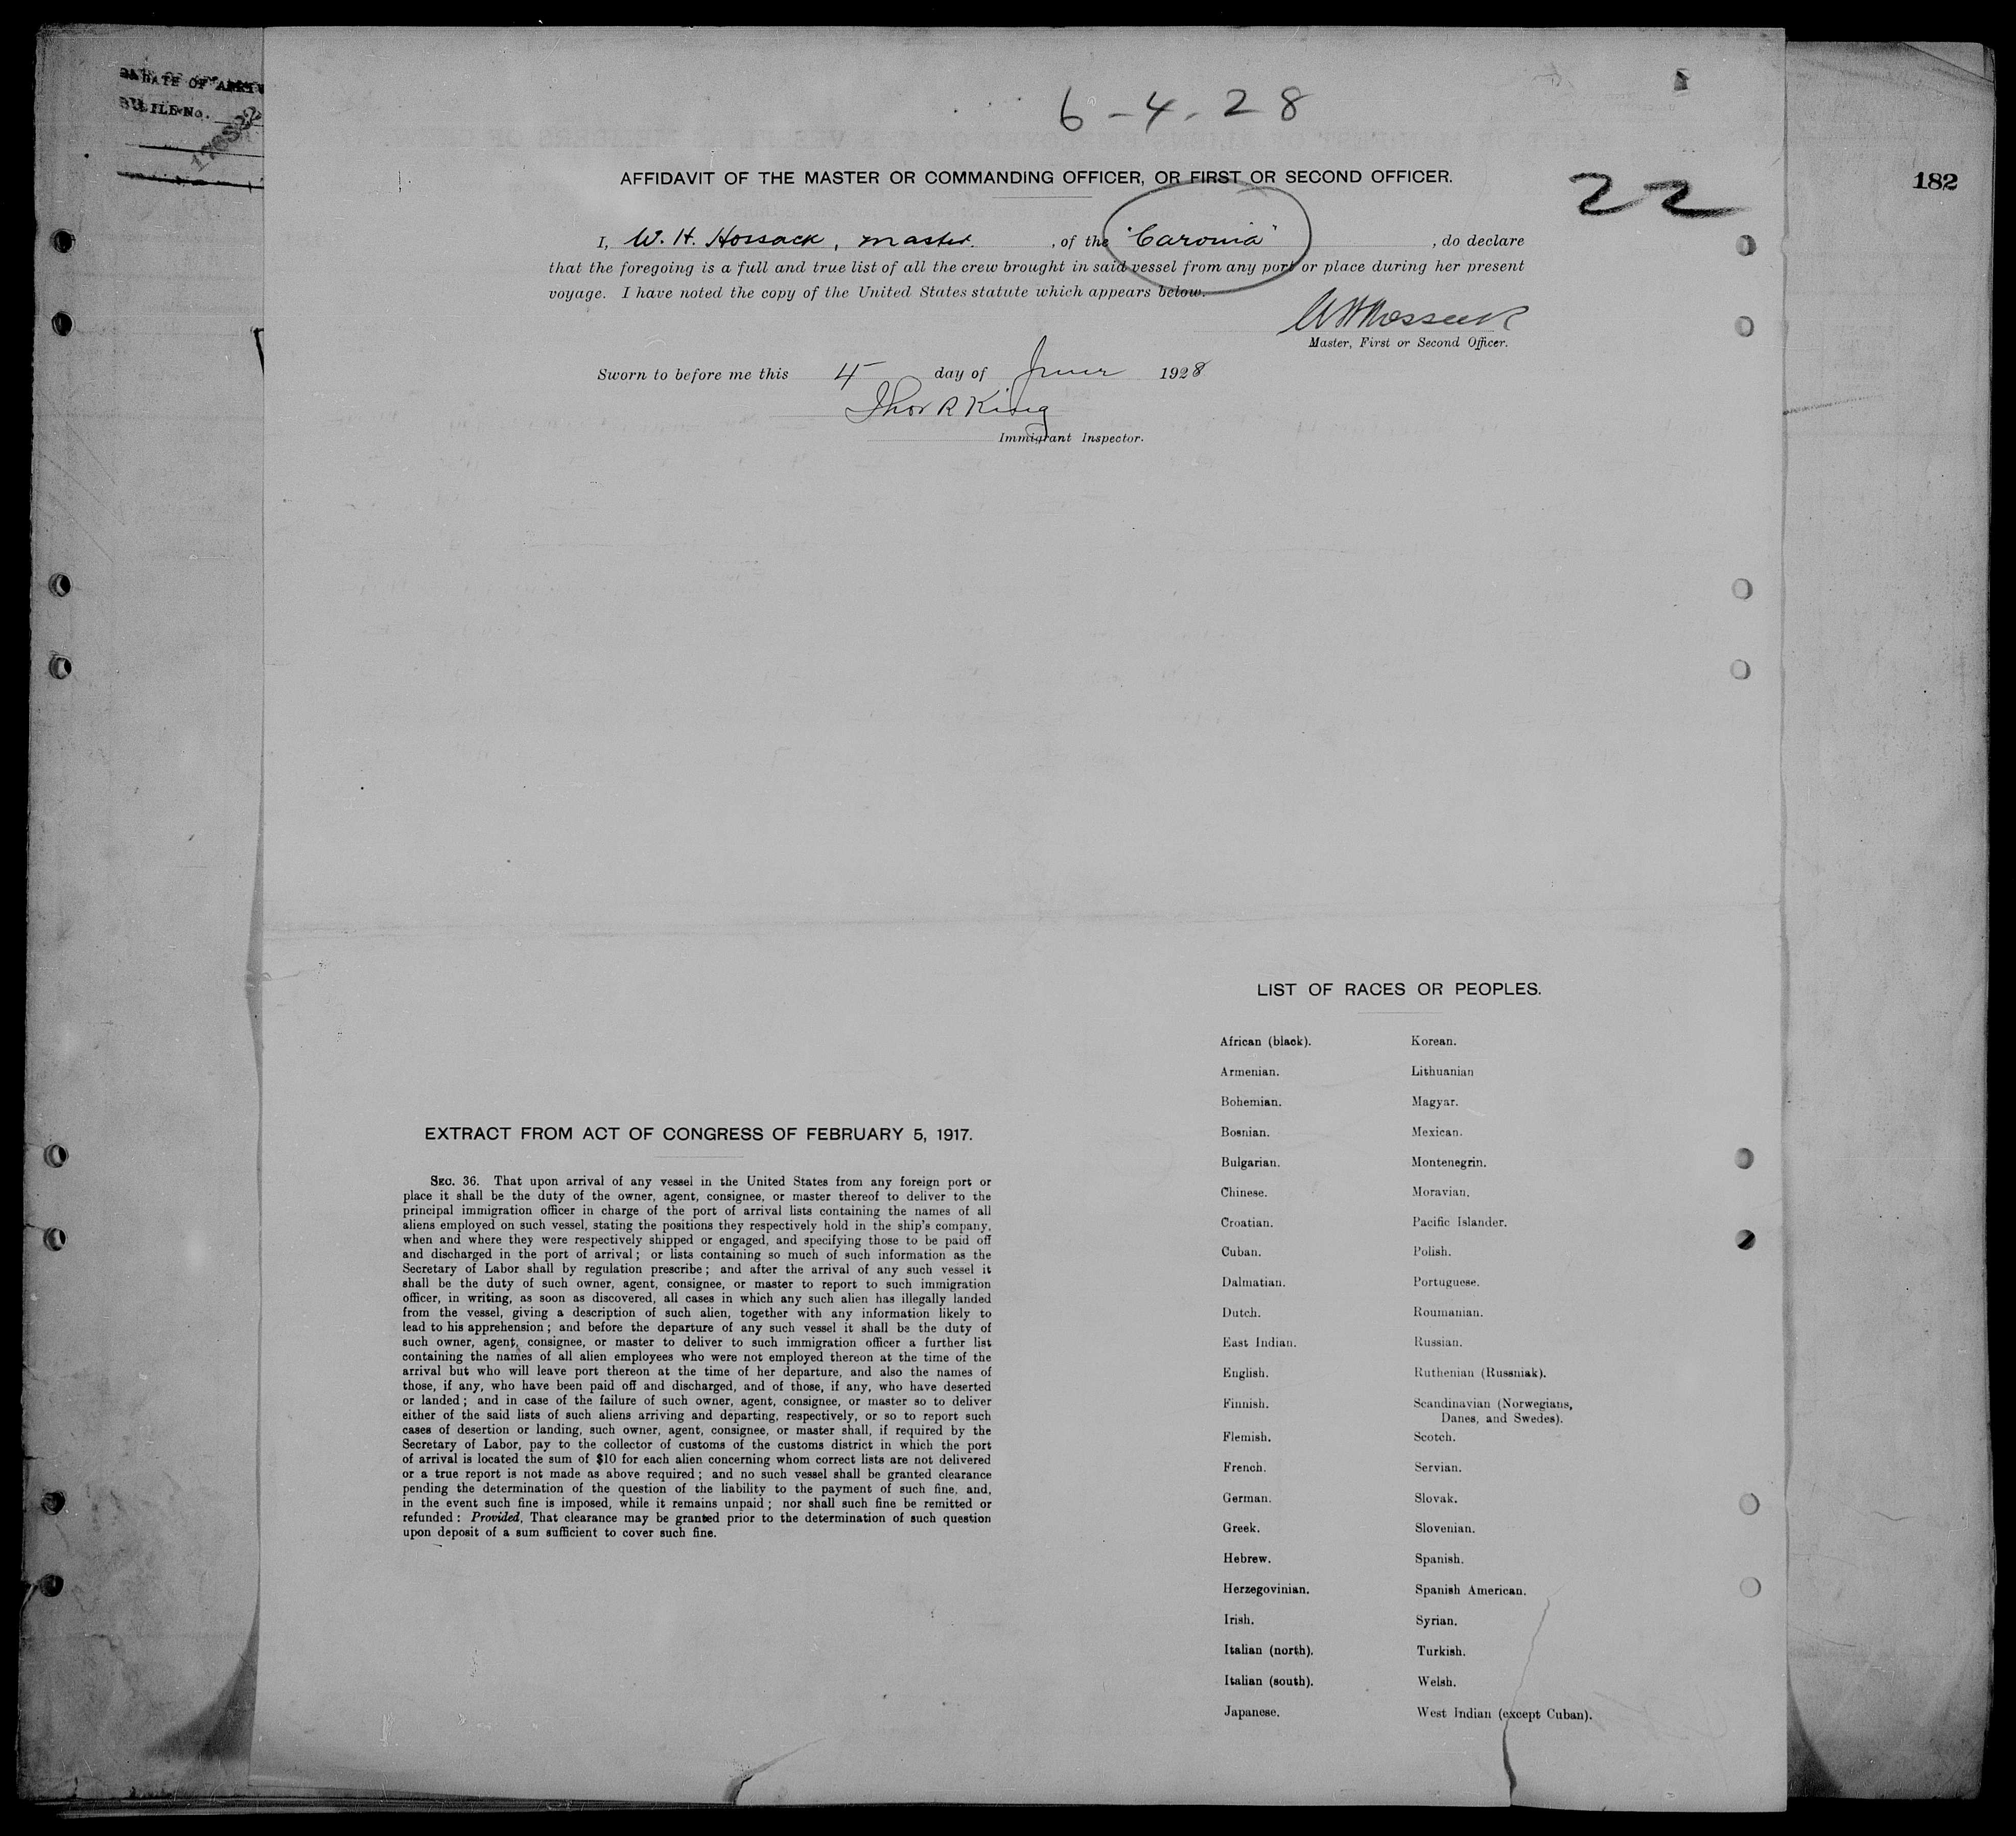 DATE OF
FILE No.
6-4-28
182
22
AFFIDAVIT OF THE MASTER OR COMMANDING OFFICER, OR FIRST OR SECOND OFFICER.
I, W. H. Hossack, master , of the "Caronia" , do declare
that the foregoing is a full and true list of all the crew brought in said vessel from any port or place during her present
voyage. I have noted the copy of the United States statute which appears below.
W H Hossack
Master, First or Second Officer.
Sworn to before me this 4 day of June 1928
Thos R King
Immigrant Inspector.
EXTRACT FROM ACT OF CONGRESS OF FEBRUARY 5, 1917.
SEC. 36. That upon arrival of any vessel in the United States from any foreign port or
place it shall be the duty of the owner, agent, consignee, or master thereof to deliver to the
principal immigration officer in charge of the port of arrival lists containing the names of all
aliens employed on such vessel, stating the positions they respectively hold in the ship's company,
when and where they were respectively shipped or engaged, and specifying those to be paid off
and discharged in the port of arrival; or lists containing so much of such information as the
Secretary of Labor shall by regulation prescribe; and after the arrival of any such vessel it
shall be the duty of such owner, agent, consignee, or master to report to such immigration
officer, in writing, as soon as discovered, all cases in which any such alien has illegally landed
from the vessel, giving a description of such alien, together with any information likely to
lead to his apprehension; and before the departure of any such vessel it shall be the duty of
such owner, agent, consignee, or master to deliver to such immigration officer a further list
containing the names of all alien employees who were not employed thereon at the time of the
arrival but who will leave port thereon at the time of her departure, and also the names of
those, if any, who have been paid off and discharged, and of those, if any, who have deserted
or landed; and in case of the failure of such owner, agent, consignee, or master so to deliver
either of the said lists of such aliens arriving and departing, respectively, or so to report such
cases of desertion or landing, such owner, agent, consignee, or master shall, if required by the
Secretary of Labor, pay to the collector of customs of the customs district in which the port
of arrival is located the sum of $10 for each alien concerning whom correct lists are not delivered
or a true report is not made as above required; and no such vessel shall be granted clearance
pending the determination of the question of the liability to the payment of such fine, and,
in the event such fine is imposed, while it remains unpaid; nor shall such fine be remitted or
refunded: Provided, That clearance may be granted prior to the determination of such question
upon deposit of a sum sufficient to cover such fine.
LIST OF RACES OR PEOPLES.
African (black).
Armenian.
Bohemian.
Bosnian.
Bulgarian.
Chinese.
Croatian.
Cuban.
Dalmatian.
Dutch.
East Indian.
English.
Finnish.
Flemish.
French.
German.
Greek.
Hebrew.
Herzegovinian.
Irish.
Italian (north).
Italian (south).
Japanese.
Korean.
Lithuanian
Magyar.
Mexican.
Montenegrin.
Moravian.
Pacific Islander.
Polish.
Portuguese.
Roumanian.
Russian.
Ruthenian (Russniak).
Scandinavian (Norwegians,
Danes, and Swedes).
Scotch.
Servian.
Slovak.
Slovenian.
Spanish.
Spanish American.
Syrian.
Turkish.
Welsh.
West Indian (except Cuban).